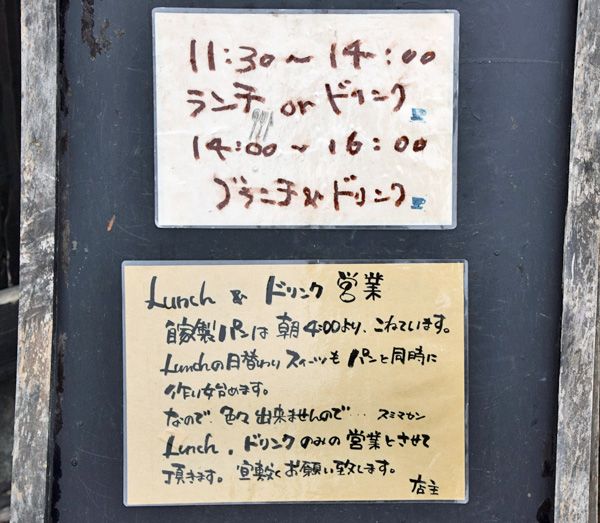 11:30～14:00
ランチ or ドリンク
14:00～16:00
ブランチ&ドリンク
Lunch & ドリンク 営業
自家製パンは 朝4:00より、こねています。
Lunchの日替わりスイーツも パンと同時に
作り始めます。
なので 色々 出来ませんので… スミマセン
Lunch、ドリンクのみの営業とさせて
頂きます。宜敷くお願い致します。
店主